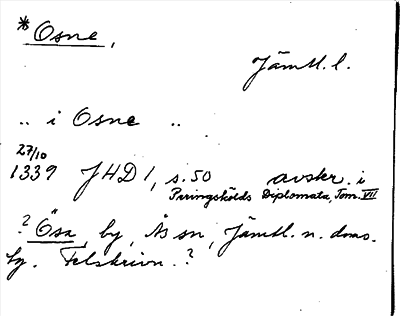 *Osne,
Jämtl. l.
.. i Osne ..
27/10
1339 JHD 1, s. 50 avskr. i
Peringskölds Diplomata, Tom. VII
? Ösa, by, Ås sn, Jämtl. n. doms.
by. Felskrivn.?